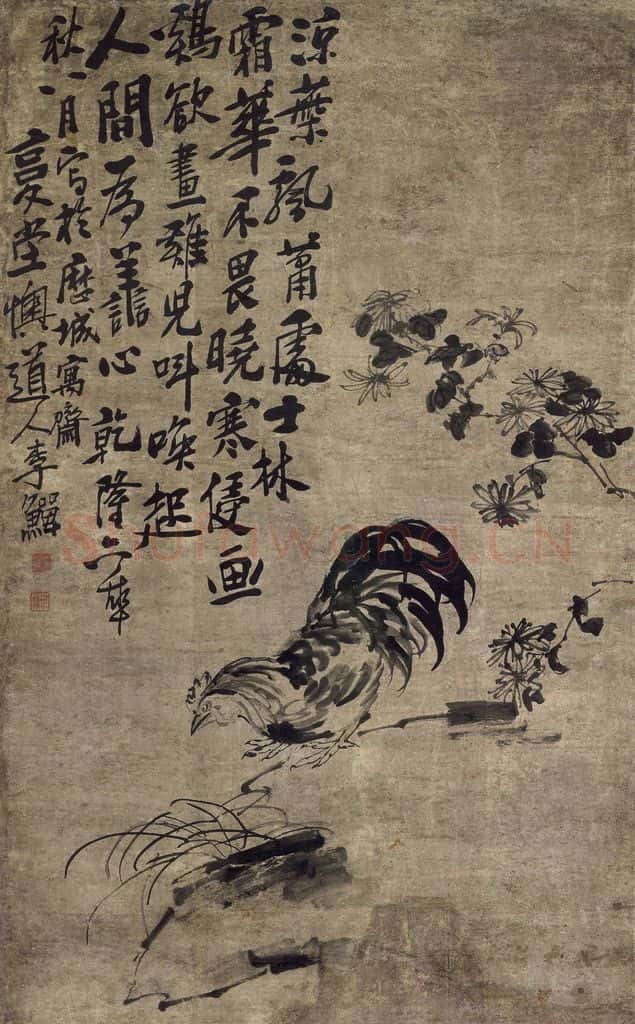 涼葉飄蕭處士林
霜華不畏曉寒侵画
鷄欲畫雞兒叫喚起
人間為譱心乾隆六年
秋八月寫於歷城寓齋
復堂懊道人李鱓
Shufawang.CN